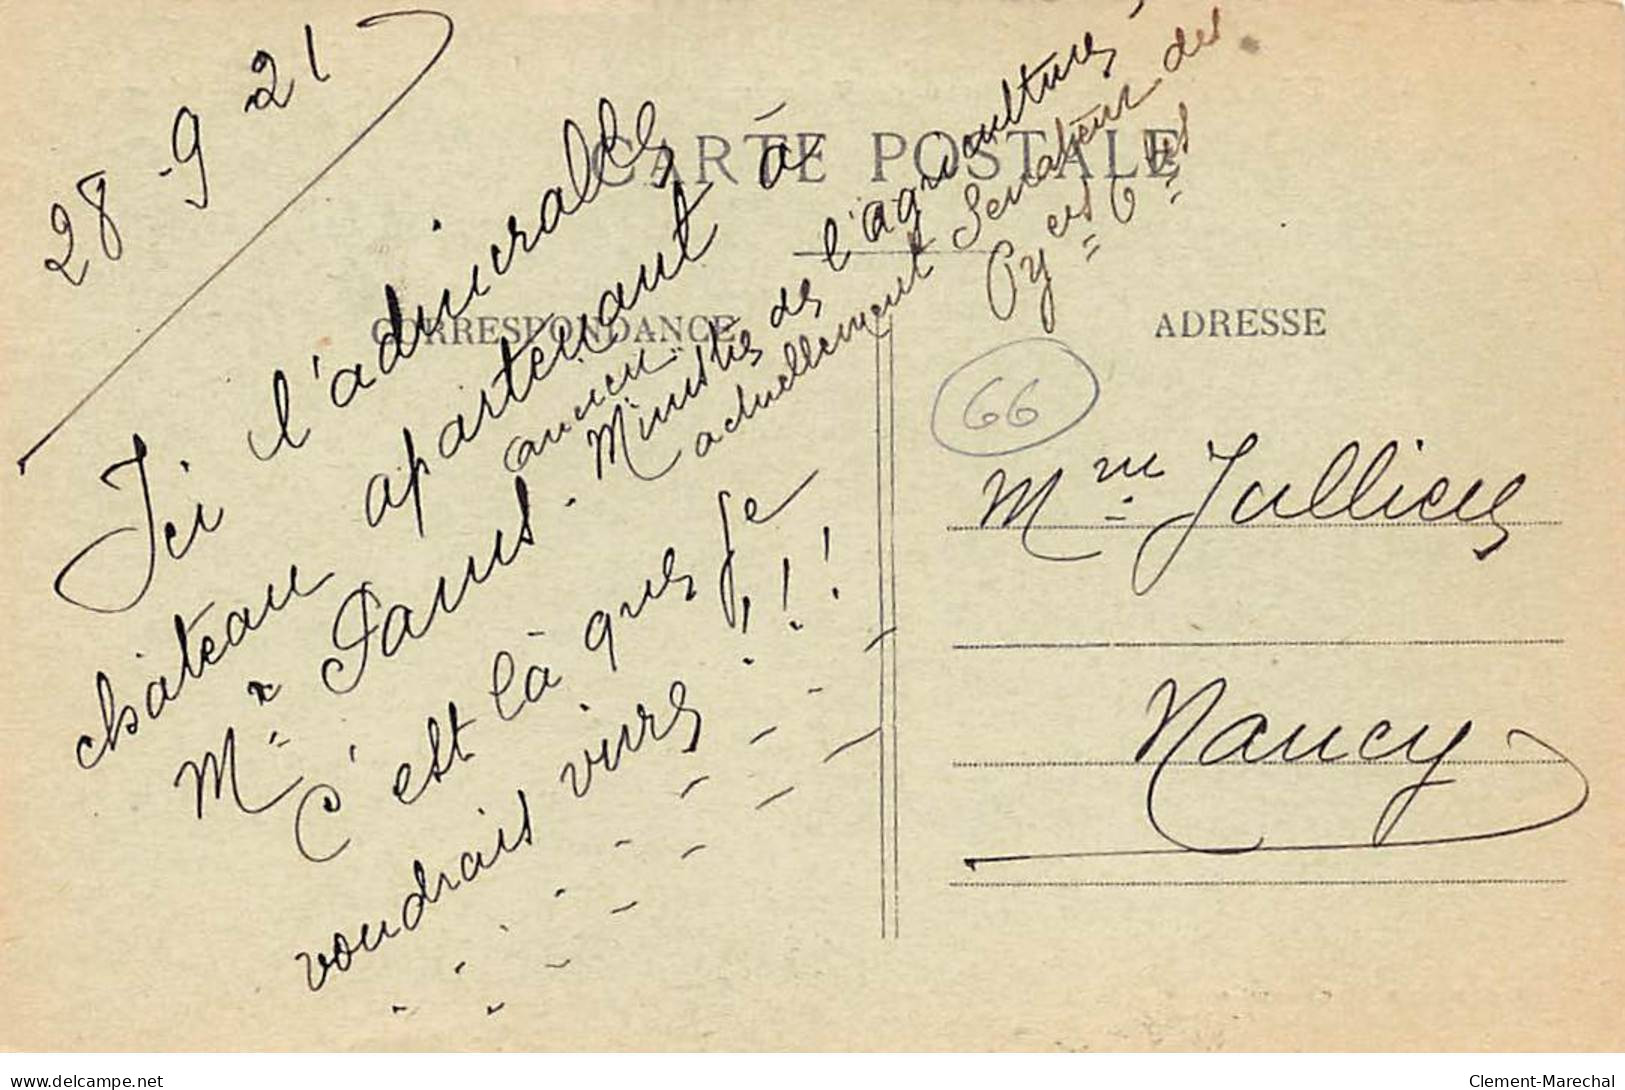 28-9 21
CARTE POSTALE
CORRESPONDANCE
ADRESSE
Ici l'admirable
château apartenant à
Mr Pams. ancien
Ministre de l'agriculture
actuellement Senateur des
Pyes Oles
C'est là que je
voudrais vivre !!!
66
Mme Jullien
Nancy
www.delcampe.net
Clement-Marechal